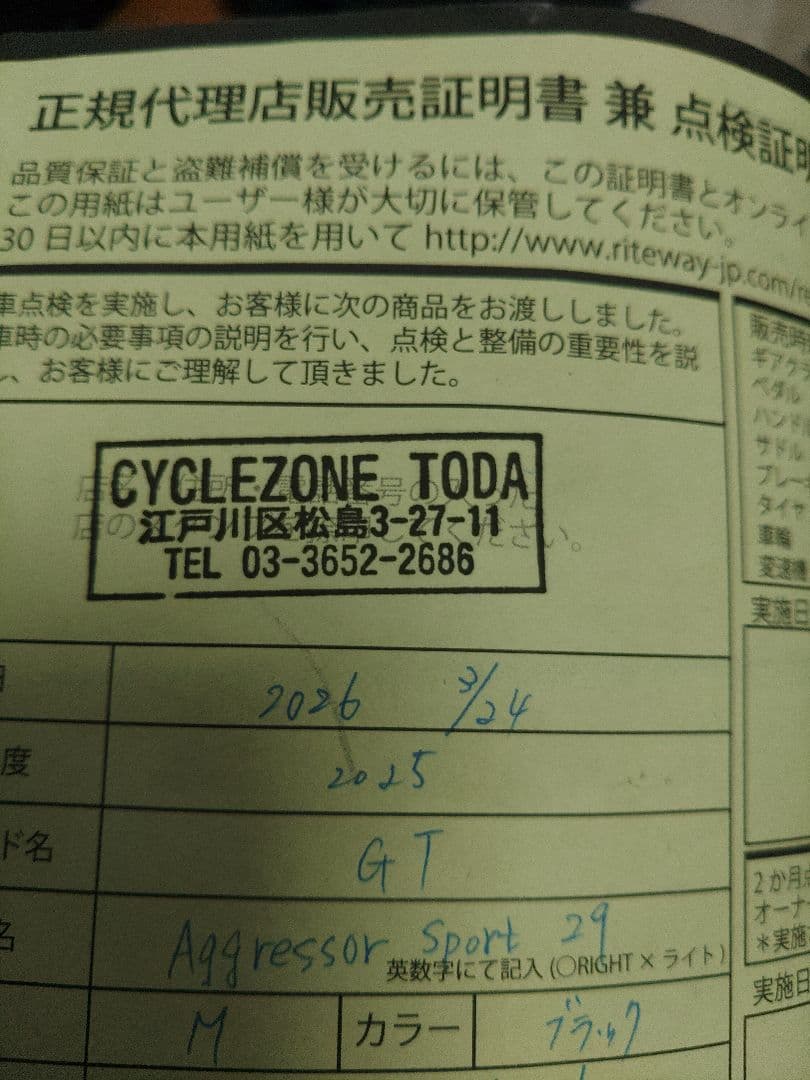 正規代理店販売証明書 兼 点検証明
品質保証と盗難補償を受けるには、この証明書とオンライ
この用紙はユーザー様が大切に保管してください。
30 日以内に本用紙を用いて http://www.riteway-jp.com/re
車点検を実施し、お客様に次の商品をお渡ししました。
車時の必要事項の説明を行い、点検と整備の重要性を説
し、お客様にご理解して頂きました。
CYCLEZONE TODA
江戸川区松島3-27-11
TEL 03-3652-2686
2026 3/24
度 2025
ド名 GT
名 Aggressor Sport 29
英数字にて記入 (○RIGHT × ライト)
M カラー ブラック
販売時
ギアクラ
ペダル
ハンドル
サドル
ブレーキ
タイヤ
車輪
変速機
実施日
2か月点
オーナー
*実施
実施日